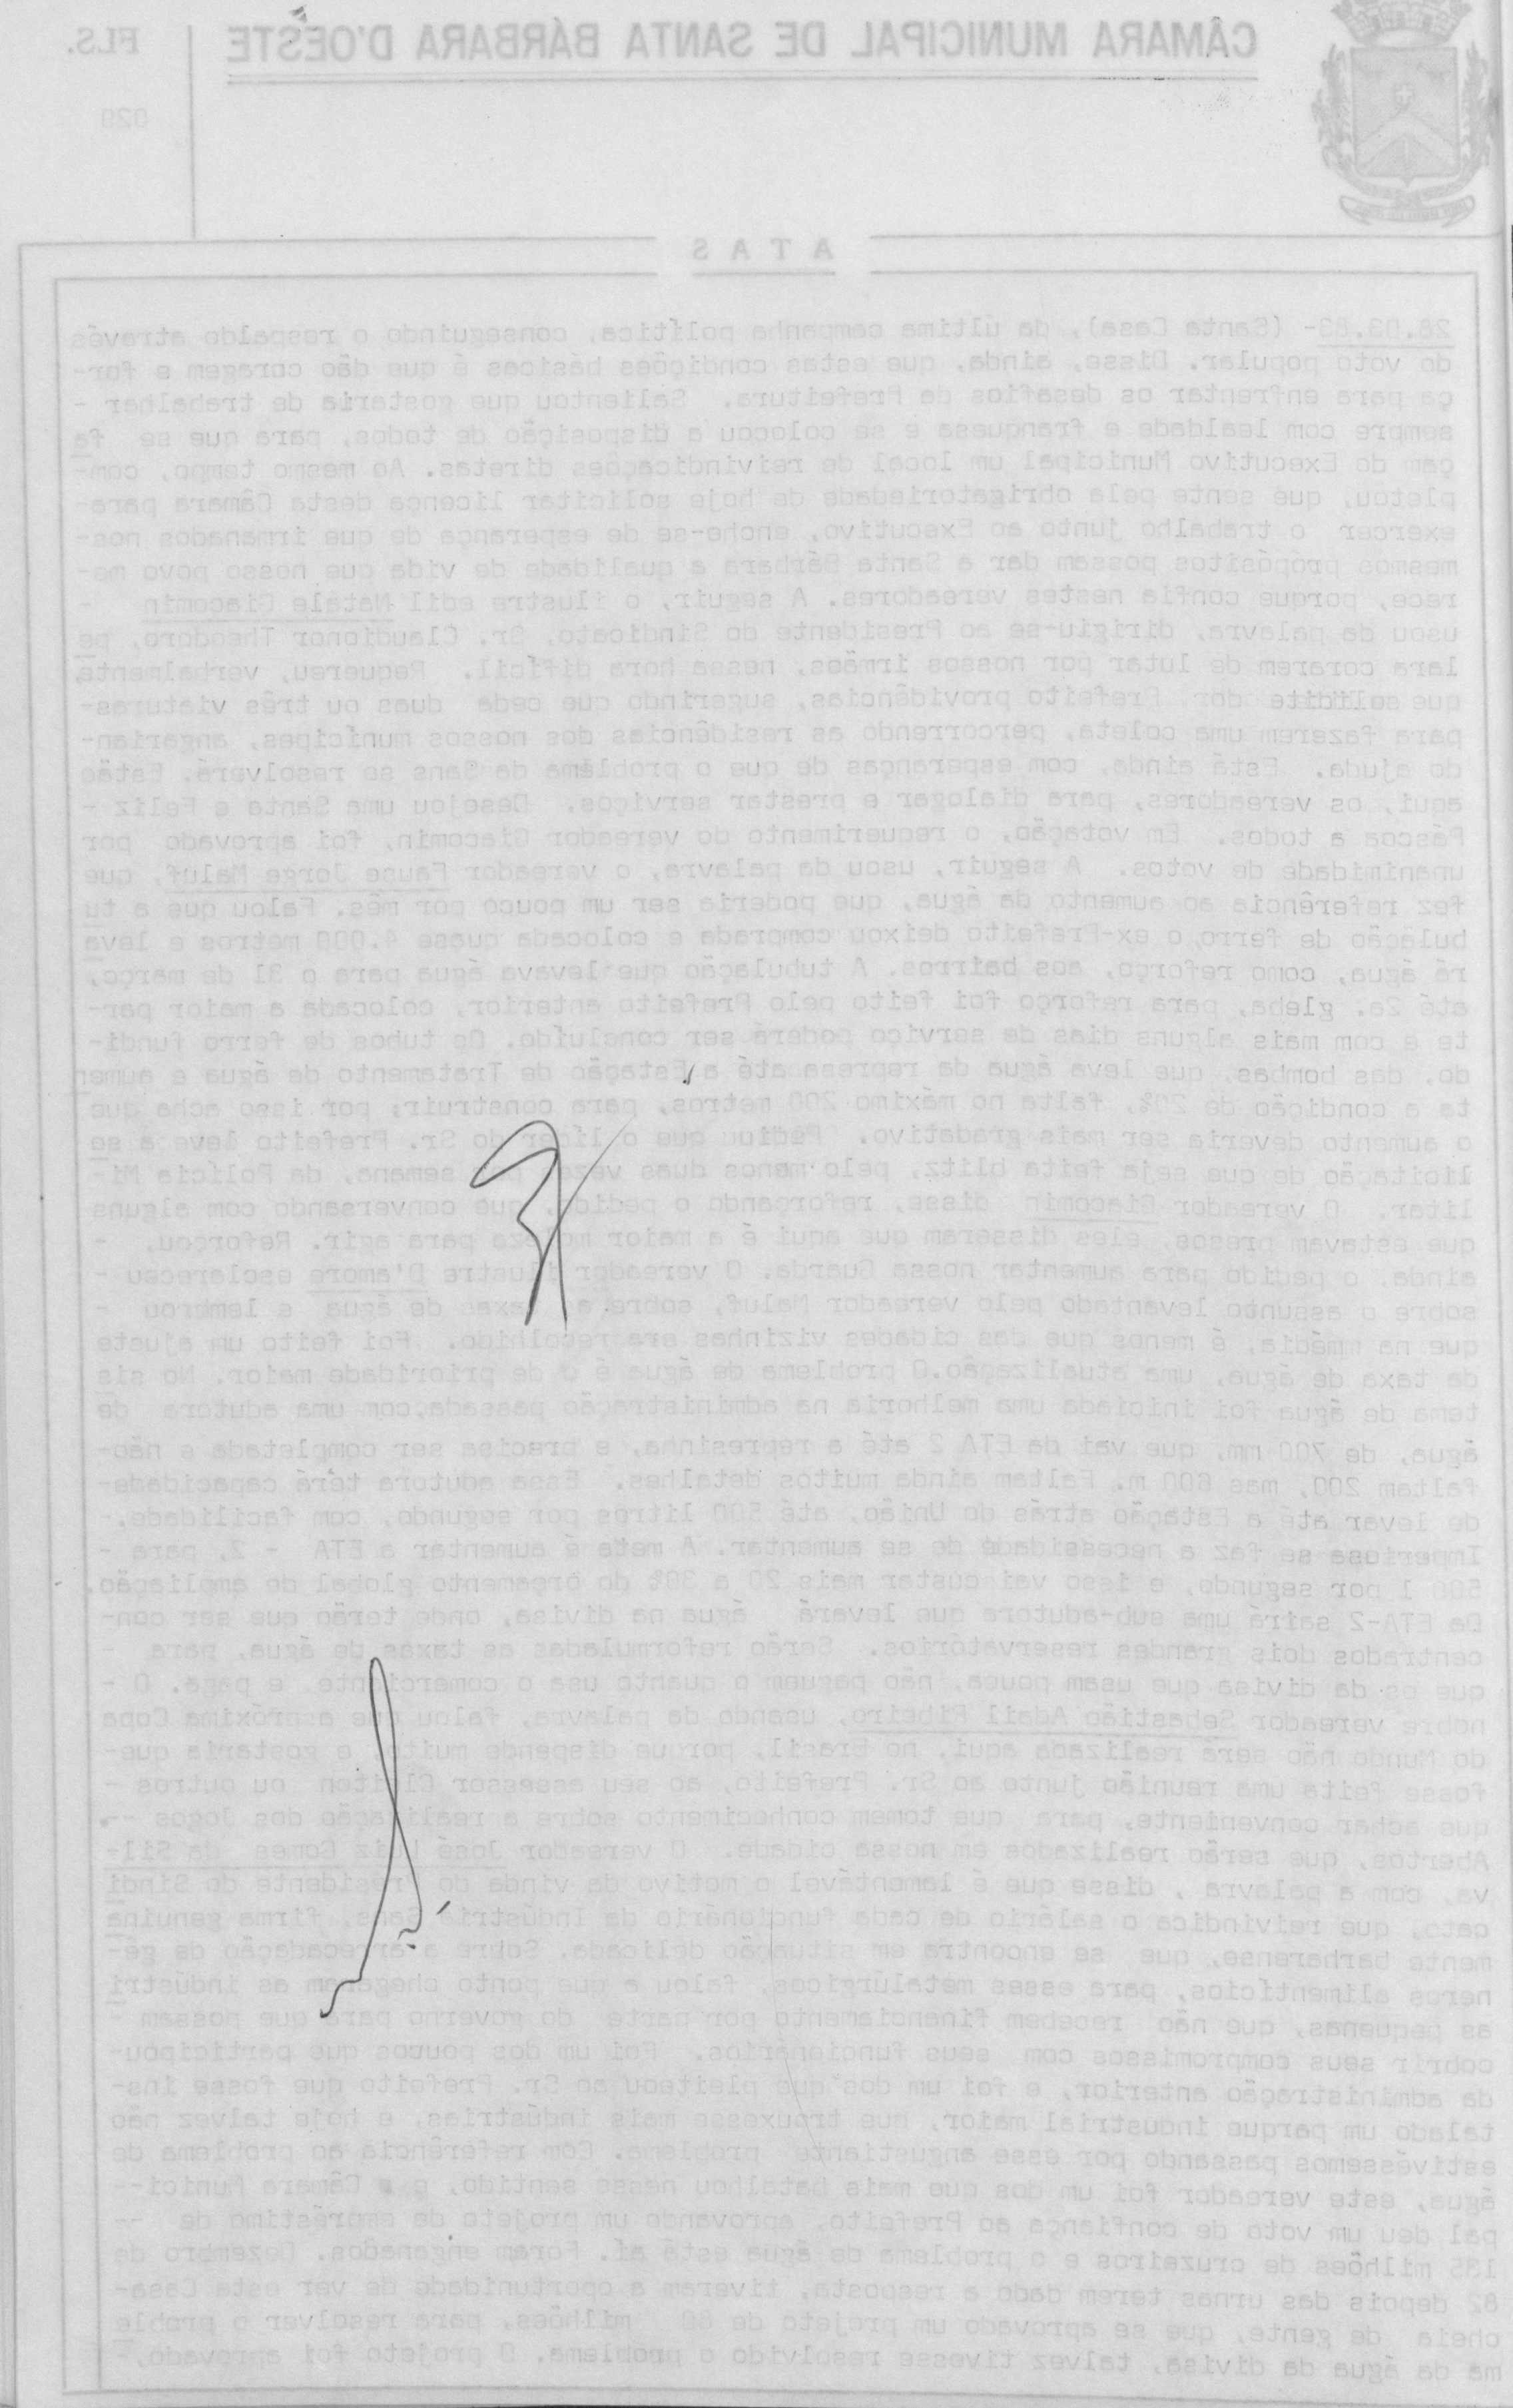 CÂMARA MUNICIPAL DE SANTA BÁRBARA D'OESTE
FLS.
029
ATAS
28.03.83- (Santa Casa), da ultima campanha política, conseguindo o respaldo através
do voto popular. Disse, ainda, que estas condições básicas é que dão coragem e for-
ça para enfrentar os desafios da Prefeitura. Salientou que gostaria de trabalhar -
sempre com lealdade e franquesa e se colocou a disposição de todos, para que se fa
çam do Executivo Municipal um local de reivindicações diretas. Ao mesmo tempo, com-
pletou, que sente pela obrigatoriedade de hoje solicitar licença desta Câmara para-
exercer o trabalho junto ao Executivo, enche-se de esperança de que irmanados nos-
mesmos propósitos possam dar a Santa Bárbara a qualidade de vida que nosso povo me-
rece, porque confia nestes vereadores. A seguir, o ilustre edil Natale Giacomin -
usou da palavra, dirigiu-se ao Presidente do Sindicato, Sr. Claudionor Theodoro, pe
lara corarem de lutar por nossos irmãos, nessa hora difícil. Requereu, verbalmente,
que solicite dor Prefeito providências, sugerindo que ceda duas ou três viaturas-
para fazerem uma coleta, percorrendo as residências dos nossos munícipes, angarian-
do ajuda. Está ainda, com esperanças de que o problema da Sans se resolverá. Estão
aqui, os vereadores, para dialogar e prestar serviços. Desejou uma Santa e Feliz -
Páscoa a todos. Em votação, o requerimento do vereador Giacomin, foi aprovado por
unanimidade de votos. A seguir, usou da palavra, o vereador Fause Jorge Maluf, que
fez referência ao aumento da água, que poderia ser um pouco por mês. Falou que a tu
bulação de ferro, o ex-Prefeito deixou comprada e colocada quase 4.000 metros e leva
rá água, como reforço, aos bairros. A tubulação que levava água para o 31 de março,
até 2a. gleba, para reforço foi feito pelo Prefeito anterior, colocada a maior par-
te e com mais alguns dias de serviço poderá ser concluído. Os tubos de ferro fundi-
do, das bombas, que leva água da represa até a Estação de Tratamento de água e aumen
ta a condição de 20%, falta no máximo 200 metros, para construir, por isso acha que
o aumento deveria ser mais gradativo. Pediu que o líder do Sr. Prefeito leve a so
licitação de que seja feita blitz, pelo menos duas vezes semana, da Polícia Mi-
litar. O vereador Giacomin disse, reforçando o pedido, que conversando com alguns
que estavam presos, eles disseram que aqui é a maior moleza para agir. Reforçou, -
ainda, o pedido para aumentar nossa Guarda. O vereador ilustre D'amore esclareceu -
sobre o assunto levantado pelo vereador Maluf, sobre as taxas de água e lembrou -
que na média, é menos que das cidades vizinhas era recolhido. Foi feito um ajuste
da taxa de água, uma atualização.O problema de água é o de prioridade maior. No sis
tema de água foi iniciada uma melhoria na administração passada,com uma adutora de
água, de 700 mm, que vai da ETA 2 até a represinha, e precisa ser completada e não-
faltam 200, mas 600 m. Faltam ainda muitos detalhes. Essa adutora terá capacidade-
de levar até a Estação atrás do União, até 500 litros por segundo, com facilidade.-
Imperiosa se faz a necessidade de se aumentar. A meta é aumentar a ETA - 2, para -
500 l por segundo, e isso vai custar mais 20 a 30% do orçamento global de ampliação.
Da ETA-2 sairá uma sub-adutora que levará água na divisa, onde terão que ser con-
centrados dois grandes reservatórios. Serão reformuladas as taxas de água, para -
que os da divisa que usam pouca, não paguem o quanto usa o comerciante, e paga. O -
nobre vereador Sebastião Adail Ribeiro, usando da palavra, falou que a próxima Copa
do Mundo não será realizada aqui, no Brasil, porque dispende muito, e gostaria que-
fosse feita uma reunião junto ao Sr. Prefeito, ao seu assessor Cleiton ou outros -
que achar conveniente, para que tomem conhecimento sobre a realização dos Jogos --
Abertos, que serão realizados em nossa cidade. O vereador José Luiz Gomes da Sil-
va, com a palavra , disse que é lamentável o motivo da vinda do Presidente do Sindi
cato, que reivindica o salário de cada funcionário da Indústria Sans, firma genuina
mente barbarense, que se encontra em situação delicada. Sobre a arrecadação de gê-
neros alimentícios, para esses metalúrgicos, falou a que ponto chegaram as indústri
as pequenas, que não recebem financiamento por parte do governo para que possam -
cobrir seus compromissos com seus funcionários. Foi um dos poucos que participou-
da administração anterior, e foi um dos que pleiteou ao Sr. Prefeito que fosse ins-
talado um parque industrial maior, que trouxesse mais indústrias, e hoje talvez não
estivéssemos passando por esse angustiante problema. Com referência ao problema de
água, este vereador foi um dos que mais batalhou nesse sentido, e a Câmara Munici--
pal deu um voto de confiança ao Prefeito, aprovando um projeto de empréstimo de --
135 milhões de cruzeiros e o problema de água está aí. Foram enganados. Dezembro de
82 depois das urnas terem dado a resposta, tiveram a oportunidade de ver esta Casa-
cheia de gente, que se aprovado um projeto de 80 milhões, para resolver o proble
ma da água da divisa, talvez tivesse resolvido o problema. O projeto foi aprovado,-